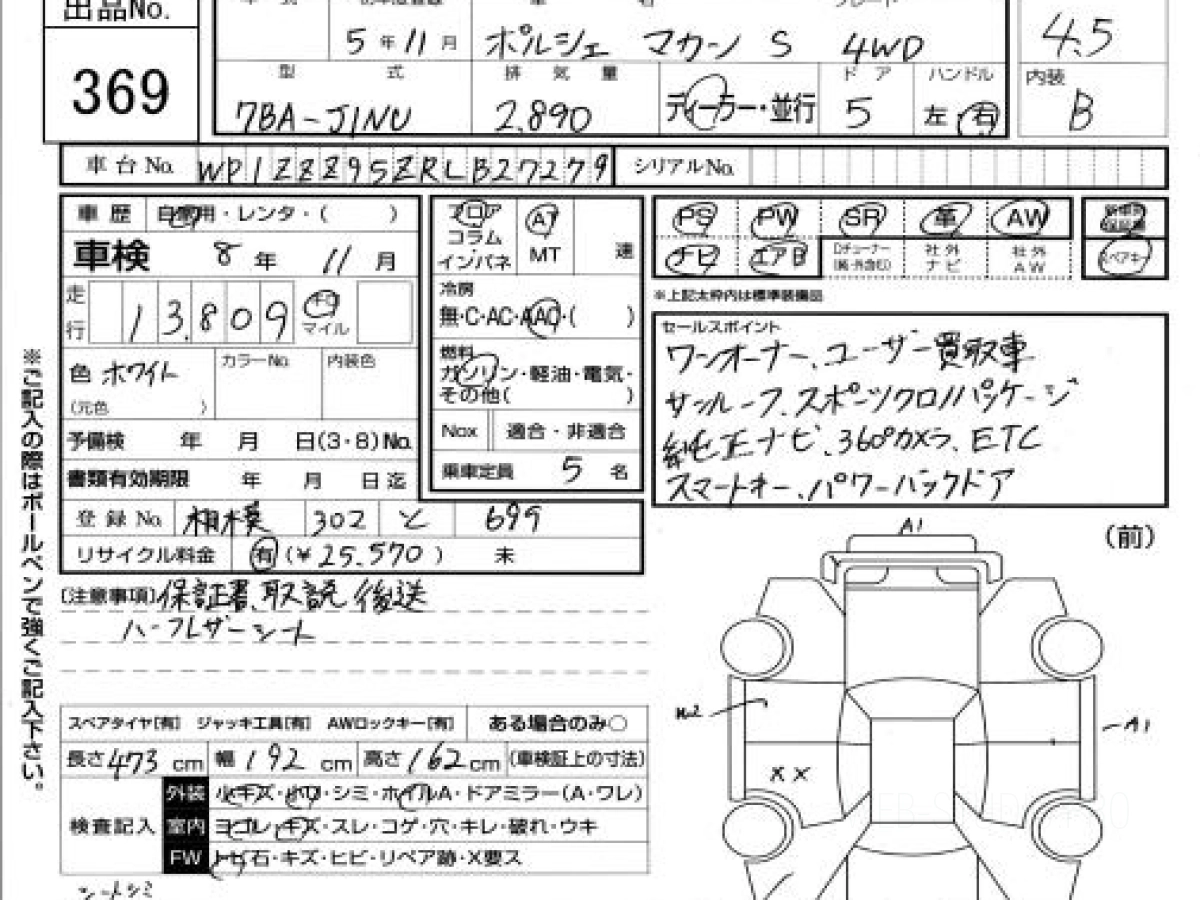 出品No.
5年11月 ポルシェ マカン S 4WD 4.5
型式 排気量 ドア ハンドル 内装
369 7BA-J1NU 2,890 ディーラー・並行 5 左 右 B
車台No. WP1ZZZ95ZRLB27279 シリアルNo.
車歴 自家用・レンタ・( )
フロア コラム・インパネ AT MT 速
PS PW SR 革 AW 新車時保証書
ナビ エアB Dチューナー 社外ナビ 社外AW スペアキー
※上記太枠内は標準装備品
車検 8年11月
走行 13,809 キロ マイル
冷房
無・C・AC・AAC・( )
色 ホワイト カラーNo. 内装色
(元色 )
燃料
ガソリン・軽油・電気・
その他( )
予備検 年 月 日(3・8)No.
Nox 適合・非適合
書類有効期限 年 月 日迄
乗車定員 5名
セールスポイント
ワンオーナー、ユーザー買取車
サンルーフ、スポーツクロノパッケージ
純正ナビ、360°カメラ、ETC
スマートキー、パワーバックドア
登録No. 相模 302 と 699
リサイクル料金 有(¥25,570) 未
[注意事項]保証書、取説 後送
ハーフレザーシート
※ご記入の際はボールペンで強くご記入下さい。
スペアタイヤ[有] ジャッキ工具[有] AWロックキー[有] ある場合のみ○
長さ473cm 幅192cm 高さ162cm (車検証上の寸法)
検査記入
外装 小キズ・小凹・シミ・ホイルA・ドアミラー(A・ワレ)
室内 ヨゴレ・キズ・スレ・コゲ・穴・キレ・破れ・ウキ
FW トビ石・キズ・ヒビ・リペア跡・X要ス
シートシミ
(前)
A1
A1
X X